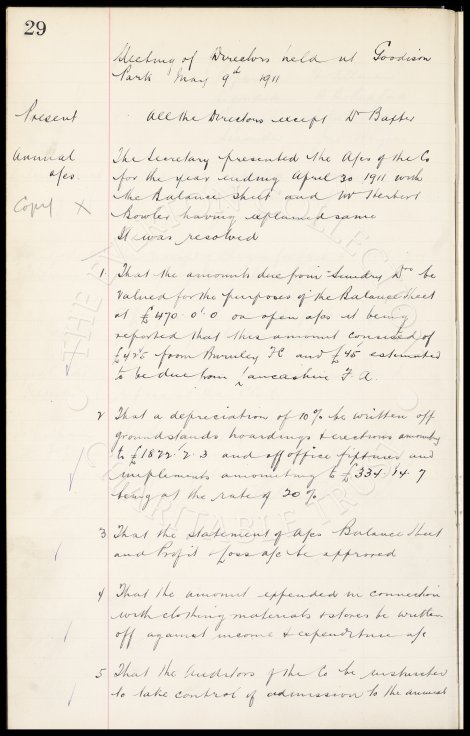 29
Meeting of Directors held at Goodison
Park May 9th 1911
Present All the Directors except Dr Baxter
Annual The Secretary presented the A/cs of the Co
a/cs for the year ending April 30 1911 with
Copy X the Balance Sheet and Mr Herbert
Bowler having explained same
It was resolved
1 That the amounts due from Sundry Drs be
valued for the purposes of the Balance Sheet
at £470.0.0 on open a/cs it being
reported that this amount consisted of
£425 from Burnley FC and £45 estimated
to be due from Lancashire F.A.
2 That a depreciation of 10% be written off
ground stands hoardings & erections amounting
to £1822.2.3 and off office fixtures and
implements amounting to £334.14.7
being at the rate of 20%
3 That the statement of A/cs Balance Sheet
and Profit & Loss a/c be approved
4 That the amount expended in connection
with clothing materials & stores be written
off against income & expenditure a/c
5 That the Auditors of the Co be instructed
to take control of admission to the annual
THE EVERTON COLLECTION
CHARITABLE TRUST